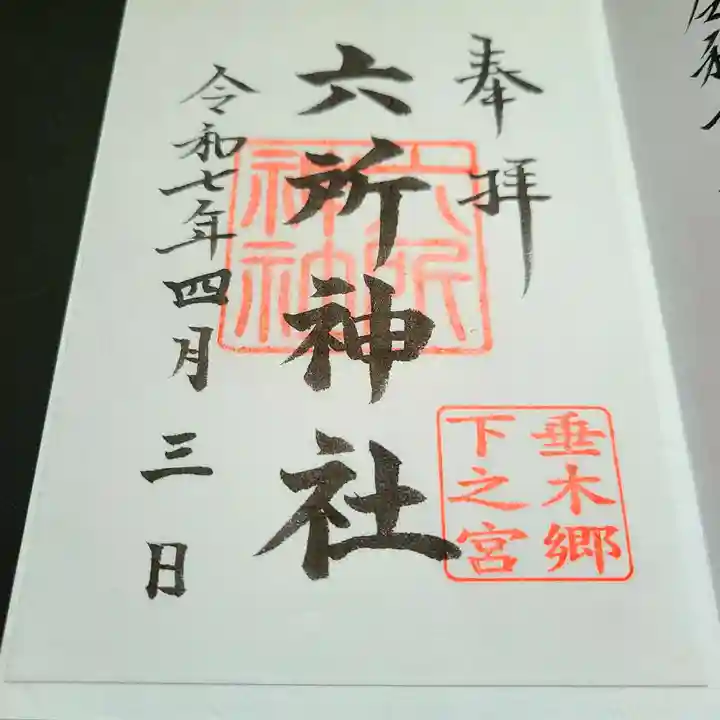 奉拝
六所神社
六所神社
垂木郷
下之宮
令和七年四月三日